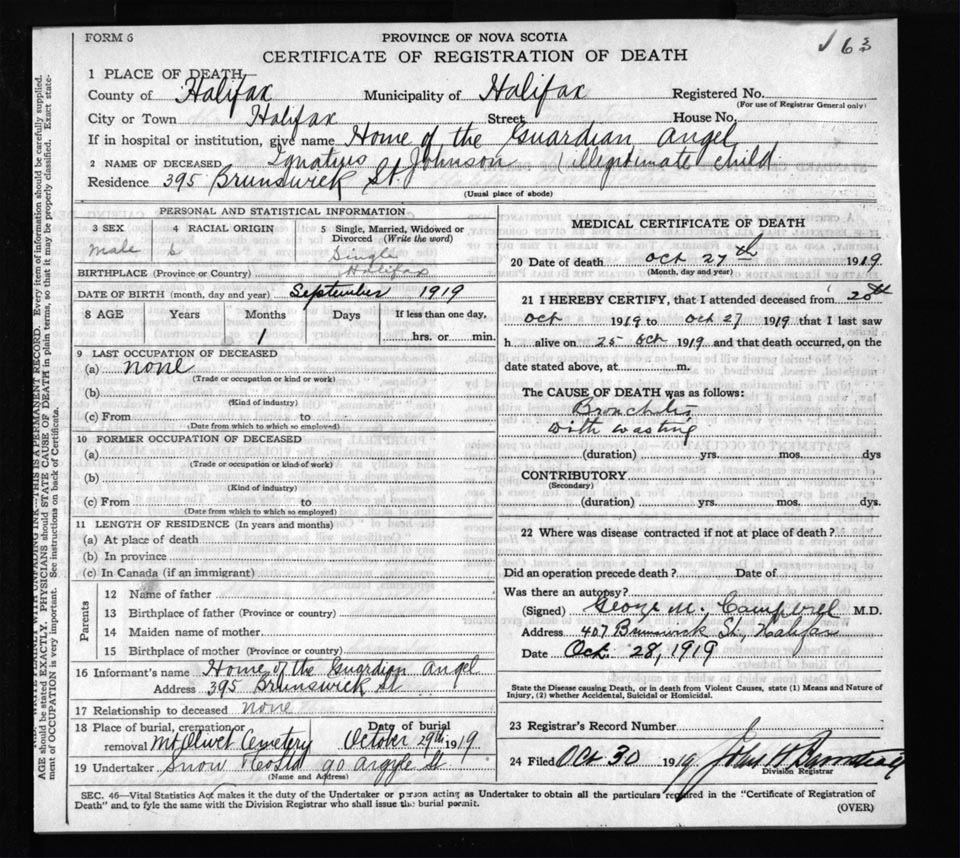 FORM 6
PROVINCE OF NOVA SCOTIA
CERTIFICATE OF REGISTRATION OF DEATH
1 PLACE OF DEATH
County of Halifax Municipality of Halifax Registered No.
(For use of Registrar General only)
City or Town Halifax Street House No.
If in hospital or institution, give name Home of the Guardian Angel
2 NAME OF DECEASED Ignatius Johnson illegitimate child
Residence 395 Brunswick St.
(Usual place of abode)
PERSONAL AND STATISTICAL INFORMATION
3 SEX 4 RACIAL ORIGIN 5 Single, Married, Widowed or Divorced (Write the word)
Male Single
BIRTHPLACE (Province or Country) Halifax
DATE OF BIRTH (month, day and year) September 1919
8 AGE Years Months Days If less than one day,
1 hrs. or min.
9 LAST OCCUPATION OF DECEASED
(a) none
(Trade or occupation or kind or work)
(b)
(Kind of industry)
(c) From to
(Date from which to which so employed)
10 FORMER OCCUPATION OF DECEASED
(a)
(Trade or occupation or kind of work)
(b)
(Kind of industry)
(c) From to
(Date from which to which so employed)
11 LENGTH OF RESIDENCE (In years and months)
(a) At place of death
(b) In province
(c) In Canada (if an immigrant)
Parents
12 Name of father
13 Birthplace of father (Province or country)
14 Maiden name of mother
15 Birthplace of mother (Province or country)
16 Informant's name Home of the Guardian Angel
Address 395 Brunswick St
17 Relationship to deceased none
18 Place of burial, cremation or removal Mt Olivet Cemetery Date of burial October 29th 1919
19 Undertaker Snow & Co Ltd 90 Argyle St
(Name and Address)
MEDICAL CERTIFICATE OF DEATH
20 Date of death Oct 27th 1919
(Month, day and year)
21 I HEREBY CERTIFY, that I attended deceased from 20th
Oct 1919 to Oct 27 1919 that I last saw
h alive on 25 Oct 1919 and that death occurred, on the
date stated above, at m.
The CAUSE OF DEATH was as follows:
Bronchitis
with wasting
(duration) yrs. mos. dys
CONTRIBUTORY
(Secondary)
(duration) yrs. mos. dys.
22 Where was disease contracted if not at place of death?
Did an operation precede death? Date of
Was there an autopsy?
(Signed) George M. Campbell M.D.
Address 407 Brunswick St, Halifax
Date Oct. 28, 1919
State the Disease causing Death, or in death from Violent Causes, state (1) Means and Nature of
Injury, (2) whether Accidental, Suicidal or Homicidal.
23 Registrar's Record Number
24 Filed Oct 30 1919
Division Registrar
SEC. 46—Vital Statistics Act makes it the duty of the Undertaker or person acting as Undertaker to obtain all the particulars required in the "Certificate of Registration of
Death" and to fyle the same with the Division Registrar who shall issue the burial permit.
(OVER)